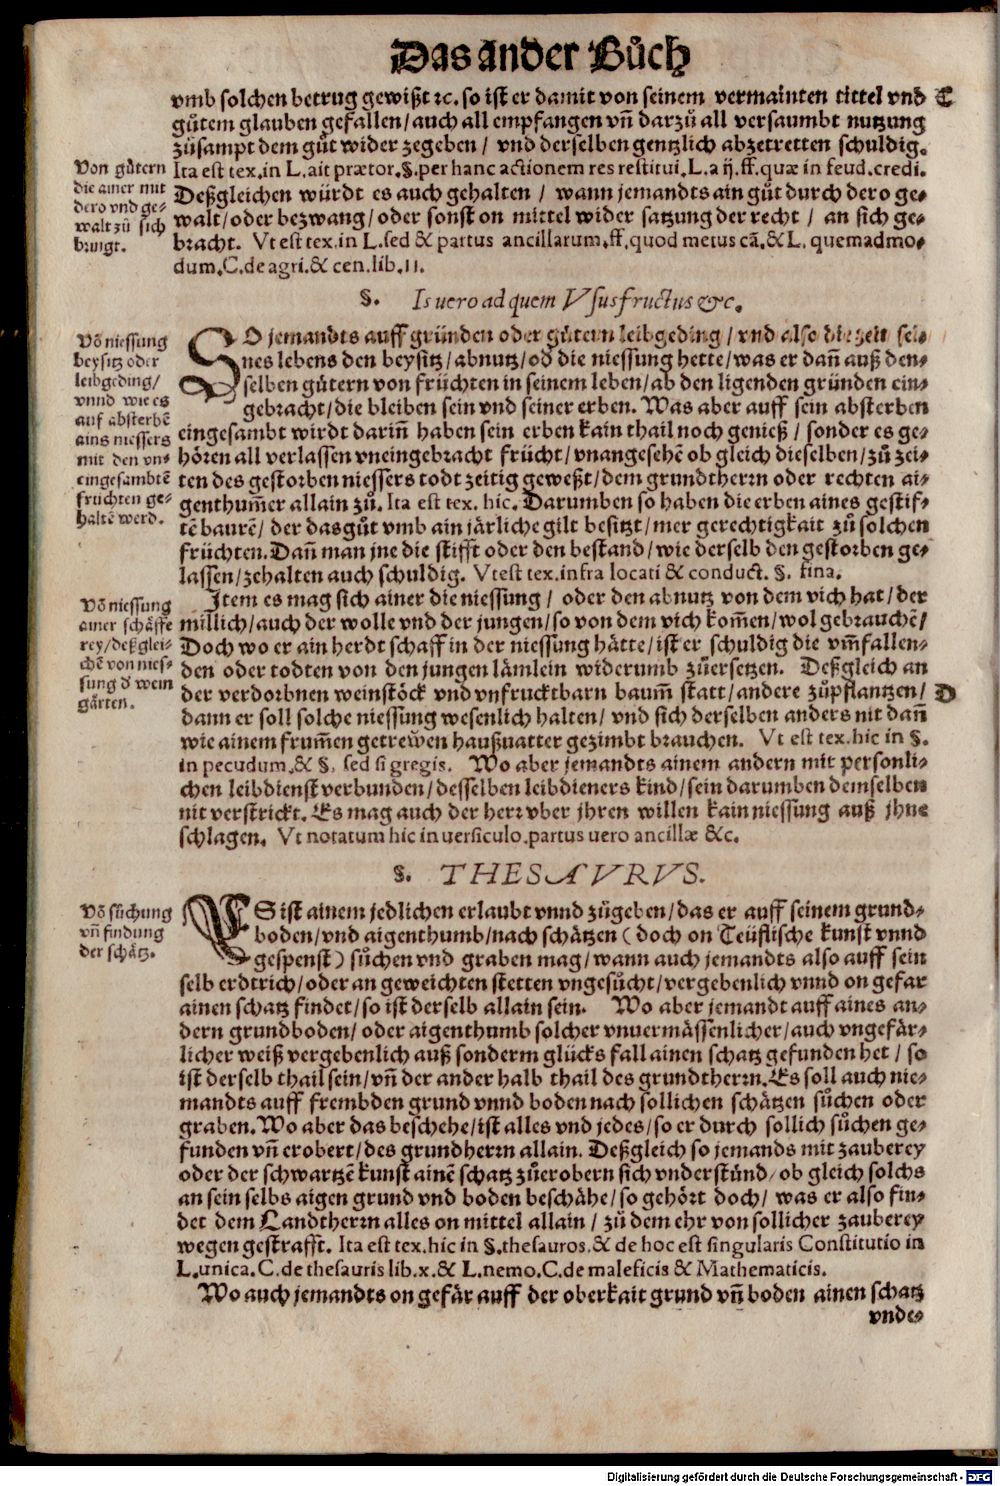 Das ander Bůch
vmb solchen betrug gewißt ⁊c. so ist er damit von seinem vermainten tittel vnd C
gůtem glauben gefallen / auch all empfangen vñ darzů all versaumbt nutzung
zůsampt dem gůt wider zegeben / vnd derselben gentzlich abzetretten schuldig.
Von gůtern
die ainer mit
dero vnd ge-
walt zů sich
bringt.
Ita est tex. in L. ait prætor. §. per hanc actionem res restitui. L. a ij. ff. quæ in feud. credi.
Deßgleichen würdt es auch gehalten / wann jemandts ain gůt durch dero ge-
walt / oder bezwang / oder sonst on mittel wider satzung der recht / an sich ge-
bracht. Vt est tex. in L. sed & partus ancillarum. ff. quod metus cã. & L. quemadmo-
dum. C. de agri. & cen. lib. 11.
§. Is uero ad quem Vsusfructus &c.
Võ niessung
beysitz oder
leibgeding /
vnnd wie es
auf absterbẽ
ains niessers
mit den vn-
eingesambtẽ
früchten ge-
haltẽ werd.
SO jemandts auff gründen oder gůtern leibgeding / vnd also die zeit sei-
nes lebens den beysitz / abnutz / oď die niessung hette / was er dañ auß den-
selben gůtern von früchten in seinem leben / ab den ligenden gründen ein-
gebracht / die bleiben sein vnd seiner erben. Was aber auff sein absterben
eingesambt wirdt dariñ haben sein erben kain thail noch genieß / sonder es ge-
hören all verlassen vneingebracht frücht / vnangesehẽ ob gleich dieselben / zů zei-
ten des gestorben niessers todt zeitig geweßt / dem grundtherrn oder rechten ai-
genthum̃er allain zů. Ita est tex. hic. Darumben so haben die erben aines gestif-
tẽ baurẽ / der das gůt vmb ain järliche gilt besitzt / mer gerechtigkait zů solchen
früchten. Dañ man jne die stifft oder den bestand / wie derselb den gestorben ge-
lassen / zehalten auch schuldig. Vt est tex. infra locati & conduct. §. fina.
Võ niessung
ainer schäffe
rey / deßglei-
chẽ von nies-
sung ď wein
gärten.
Item es mag sich ainer die niessung / oder den abnutz von dem vich hat / der
millich / auch der wolle vnd der jungen / so von dem vich kom̃en / wol gebrauchẽ /
Doch wo er ain herdt schaff in der niessung hätte / ist er schuldig die vm̃fallen-
den oder todten von den jungen lämlein widerumb zůersetzen. Deßgleich an
der verdorbnen weinstöck vnd vnfrucktbarn baum̃ statt / andere zůpflantzen / D
dann er soll solche niessung wesenlich halten / vnd sich derselben anders nit dañ
wie ainem frum̃en getrewen haußuatter gezimbt brauchen. Vt est tex. hic in §.
in pecudum. & §. sed si gregis. Wo aber jemandts ainem andern mit personli-
chen leibdienst verbunden / desselben leibdieners kind / sein darumben demselben
nit verstrickt. Es mag auch der herr vber jhren willen kain niessung auß jhne
schlagen. Vt notatum hic in uersiculo. partus uero ancillæ &c.
§. THESAVRVS.
Võ sůchung
vñ findung
der schätz.
ES ist ainem jedlichen erlaubt vnnd zůgeben / das er auff seinem grund-
boden / vnd aigenthumb / nach schätzen ( doch on Teüflische kunst vnnd
gespenst ) sůchen vnd graben mag / wann auch jemandts also auff sein
selb erdtrich / oder an geweichten stetten vngesůcht / vergebenlich vnnd on gefar
ainen schatz findet / so ist derselb allain sein. Wo aber jemandt auff aines an-
dern grundboden / oder aigenthumb solcher vnuermässenlicher / auch vngefär-
licher weiß vergebenlich auß sonderm glücks fall ainen schatz gefunden het / so
ist derselb thail sein / vñ der ander halb thail des grundtherrn. Es soll auch nie-
mandts auff frembden grund vnnd boden nach sollichen schätzen sůchen oder
graben. Wo aber das beschehe / ist alles vnd jedes / so er durch sollich sůchen ge-
funden vñ erobert / des grundherrn allain. Deßgleich so jemands mit zauberey
oder der schwartzẽ kunst ainẽ schatz zůerobern sich vnderstůnd / ob gleich solchs
an sein selbs aigen grund vnd boden beschähe / so gehört doch / was er also fin-
det dem Landtherrn alles on mittel allain / zů dem ehr von sollicher zauberey
wegen gestrafft. Ita est tex. hic in §. thesauros. & de hoc est singularis Constitutio in
L. unica. C. de thesauris lib. x. & L. nemo. C. de maleficis & Mathematicis.
Wo auch jemandts on gefär auff der oberkait grund vñ boden ainen schatz
vnde-
Digitalisierung gefördert durch die Deutsche Forschungsgemeinschaft - DFG